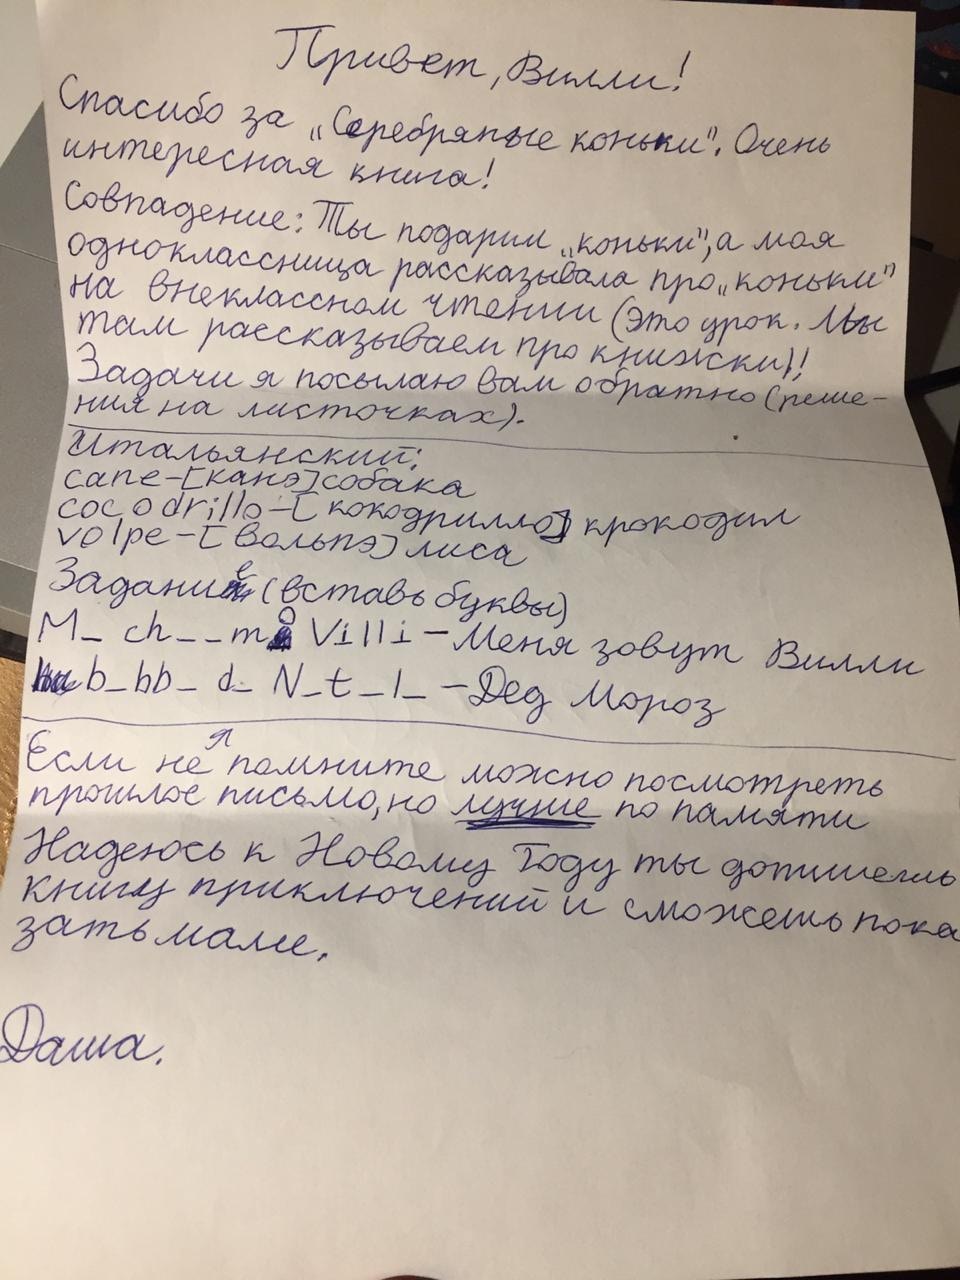 Привет, Вилли!
Спасибо за „Серебряные коньки". Очень
интересная книга!
Совпадение: Ты подарил „коньки", а моя
одноклассница рассказывала про „коньки"
на внеклассном чтении (это урок. Мы
там рассказываем про книжки)!
Задачи я посылаю вам обратно (реше-
ния на листочках).
Итальянский:
cane-[канэ] собака
cocodrillo-[кокодрилло] крокодил
volpe-[вольпэ] лиса
Задание (вставь буквы)
M_ ch__mo Villi - Меня зовут Вилли
b_bb_ d_ N_t_l_ - Дед Мороз
Если не помните можно посмотреть
прошлое письмо, но лучше по памяти
Надеюсь к Новому Году ты допишешь
книгу приключений и сможешь пока
зать маме.
Даша.